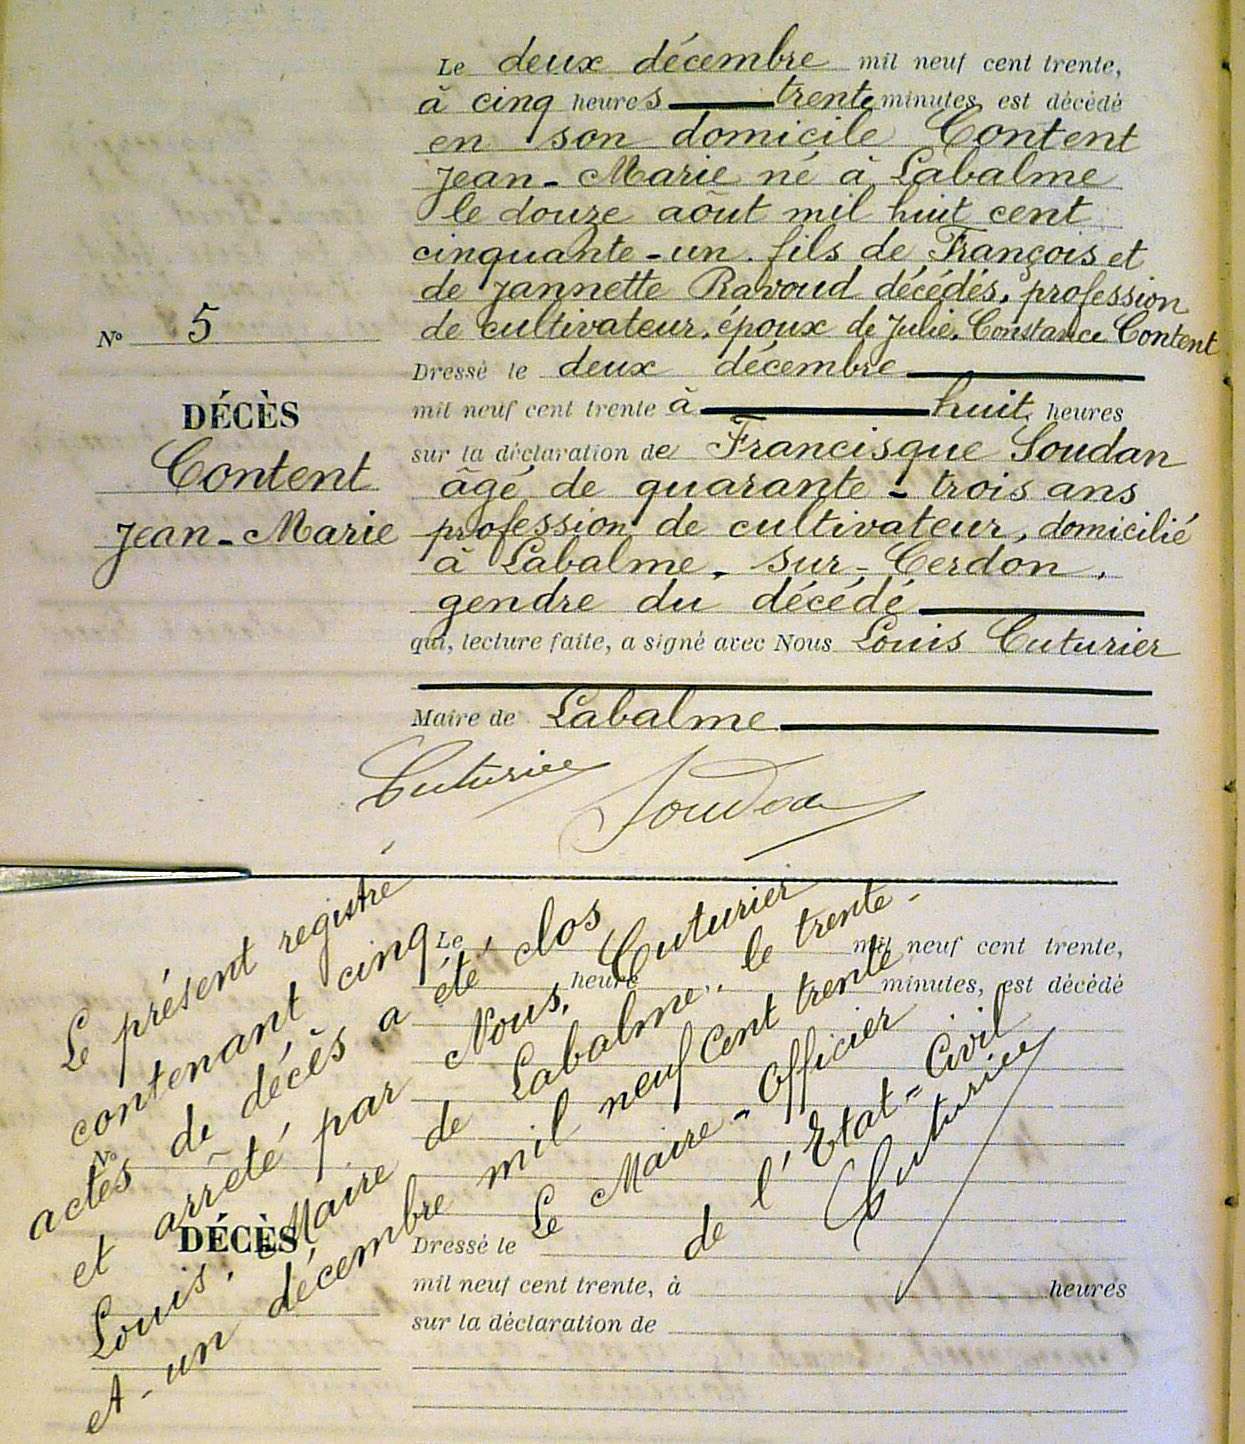 Le deux décembre mil neuf cent trente,
à cinq heures trente minutes est décédé
en son domicile Content
Jean-Marie né à Labalme
le douze aôut mil huit cent
cinquante-un. fils de François et
de Jannette Ravoud décédés, profession
de cultivateur, époux de Julie. Constance Content
Dressé le deux décembre
mil neuf cent trente à huit heures
sur la déclaration de Francisque Soudan
âgé de quarante-trois ans
profession de cultivateur, domicilié
à Labalme-sur-Cerdon,
gendre du décédé
qui, lecture faite, a signé avec Nous Louis Cuturier
Maire de Labalme
Nº 5
DÉCÈS
Content
Jean-Marie
Cuturier
Soudan
Le présent registre
contenant cinq
actes de décès a été clos
et arrêté par Nous, Cuturier
Louis, Maire de Labalme, le trente-
et-un décembre mil neuf cent trente
Le Maire-Officier
de l'Etat=Civil
Cuturier
Le mil neuf cent trente,
heure minutes, est décédé
Nº
DÉCÈS
Dressé le
mil neuf cent trente, à heures
sur la déclaration de